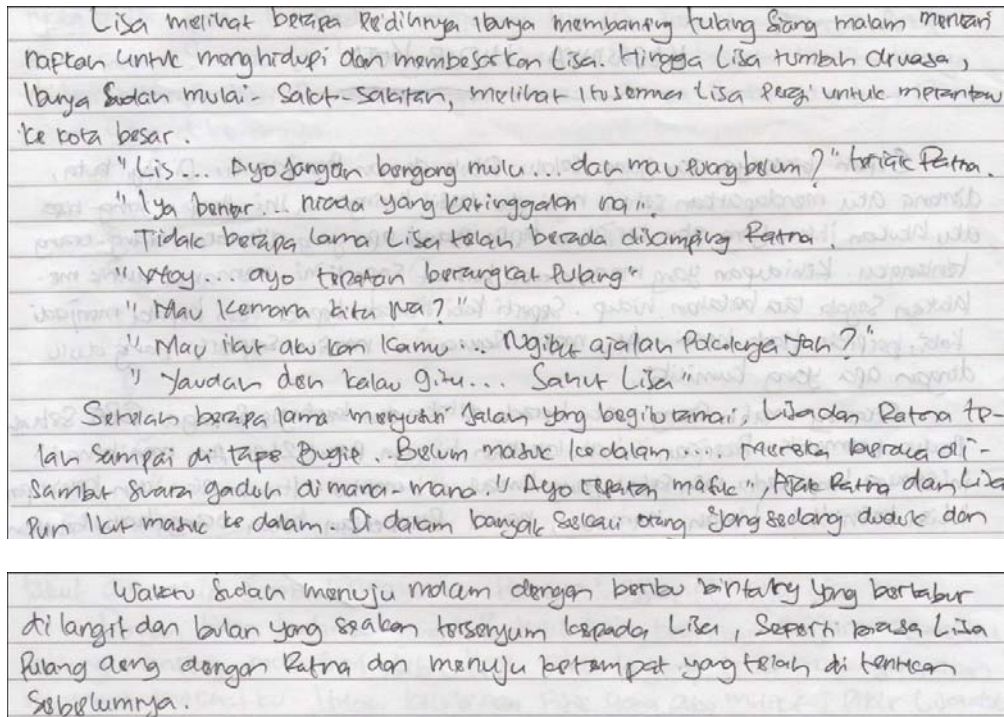 Lisa melihat betapa pedihnya Ibunya membanting tulang siang malam mencari
nafkah untuk menghidupi dan membesarkan Lisa. Hingga Lisa tumbuh dewasa,
Ibunya sudah mulai sakit-sakitan, melihat itu semua Lisa pergi untuk merantau
ke kota besar.
"Lis... Ayo jangan bengong mulu... dah mau pulang belum?" teriak Ratna.
"Iya benar... ntada yang ketinggalan na"...
Tidak berapa lama Lisa telah berada disamping Ratna.
"Woy... ayo cepatan berangkat Pulang"
"Mau Kemana kita Na?"
"Mau ikut aku kan Kamu... Ngibut ajalah Pokoknya Yah?"
"Yaudah deh kalau gitu... Sahut Lisa"
Setelah berapa lama menyusuri Jalan yang begitu ramai, Lisa dan Ratna te-
lah sampai di Bugit. Belum masuk kedalam... mereka berdua di-
sambut suara gaduh di mana-mana. "Ayo cepatan masuk", Ajak Ratna dan Lisa
pun ikut masuk ke dalam. Di dalam banyak sekali orang yang sedang duduk dan
Waktu sudah menuju malam dengan beribu bintang yang bertabur
di langit dan bulan yang seakan tersenyum kepada Lisa, Seperti biasa Lisa
Pulang dengan Ratna dan menuju ketempat yang telah di tentukan
Sebelumnya.